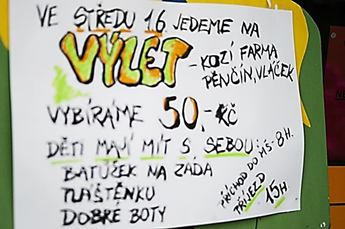 VE STŘEDU 16 JEDEME NA
VÝLET - KOZÍ FARMA
PĚNČÍN, VLÁČEK
VYBÍRÁME 50,- KČ
DĚTI MAJÍ MÍT S SEBOU:
BATŮŽEK NA ZÁDA
PLÁŠTĚNKU
DOBRÉ BOTY
PŘÍCHOD DO MŠ - 8H.
PŘÍJEZD 15H